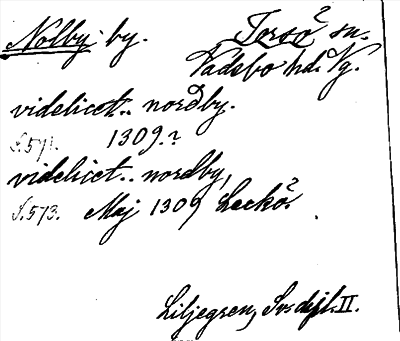 Nolby by. Torsö? sn.
Vadsbo hd. Vg.
videlicet.. nordby.
S.571. 1309.?
videlicet.. nordby,
S.573. Maj 1309 Leckö?.
Liljegren, Sv. dipl. II.